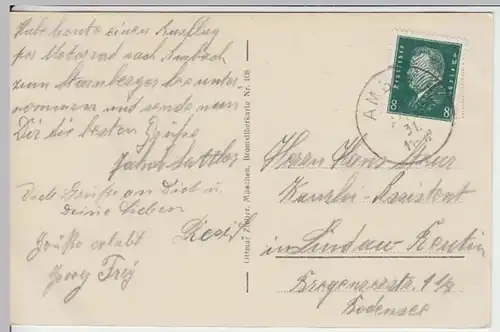 Habe heute einen Ausflug
per Motorrad nach
zum Starnberger See unter-
nommen und sende nun
Dir die besten Grüße
Viele Grüße an Dich u.
deine Lieben
Resi
Grüße erlabt
Georg Frey
Ottmar Zieher, München, Bromsilberkarte Nr. 408
Deutsches Reich
8 8
AM
31.
Herrn Hans
Kanzlei-Assistent
in Lindau Reutin
Bregenzerstr.
Bodensee